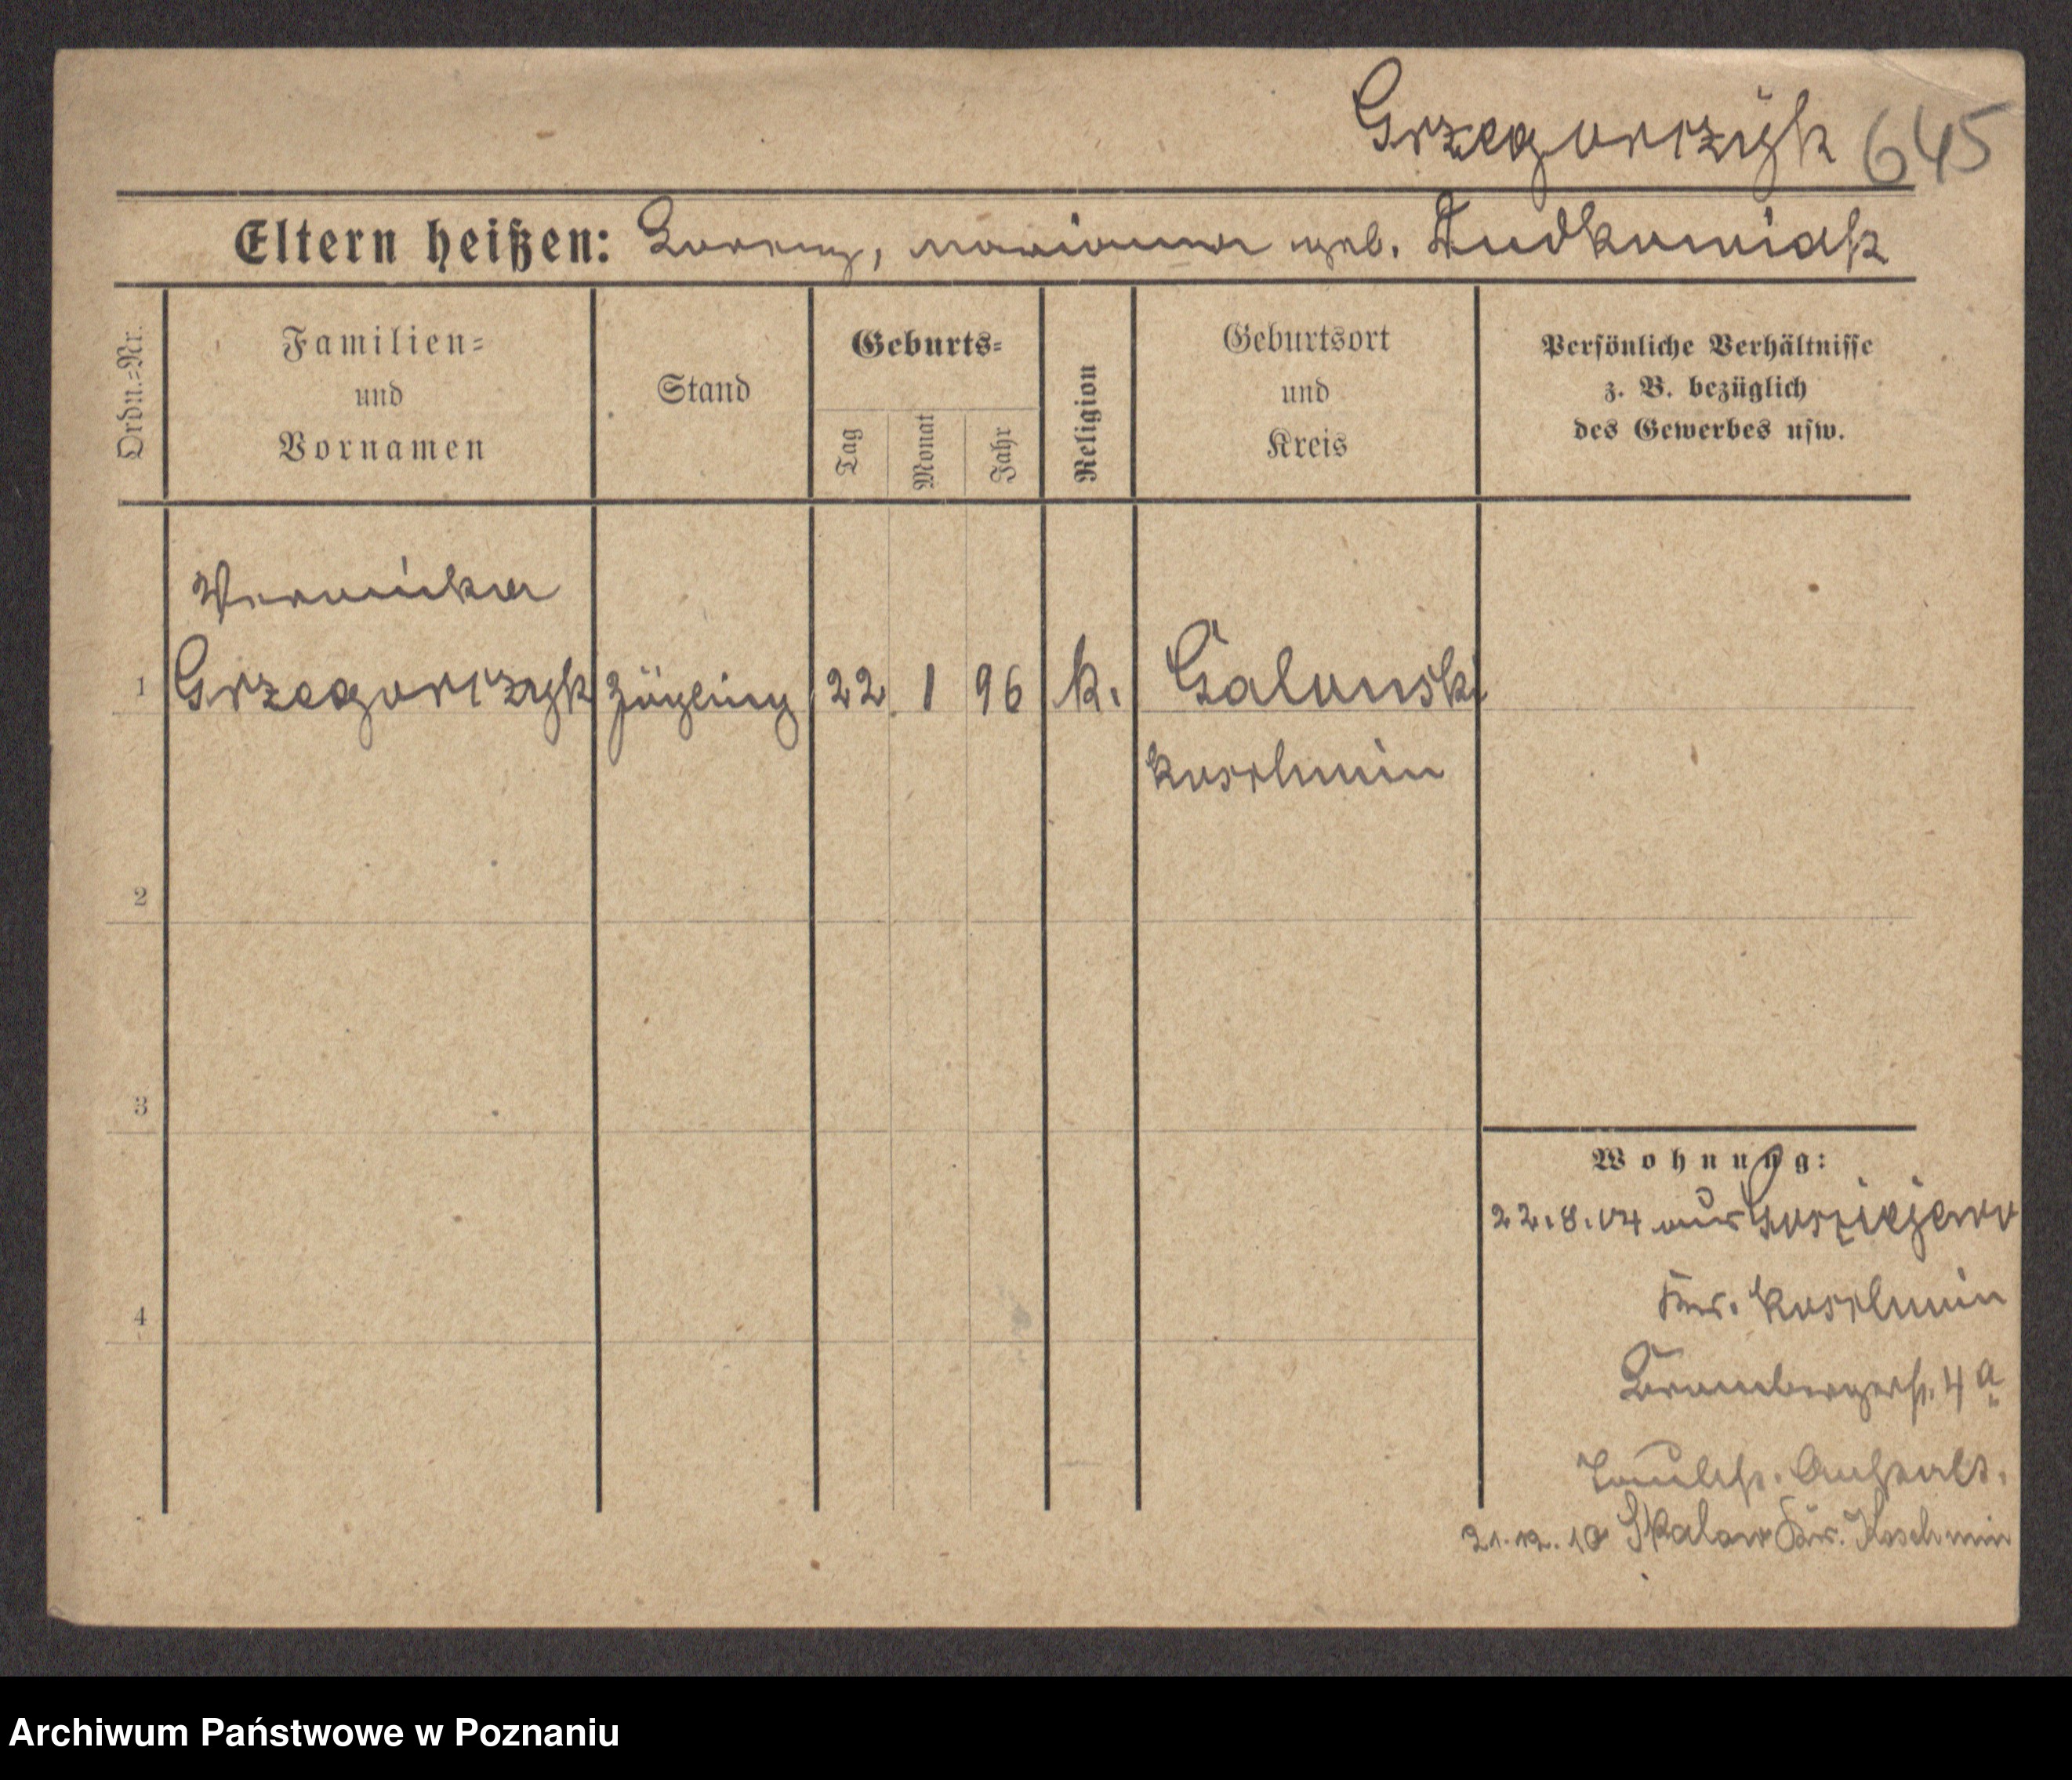 Grzegorczyk 645
Eltern heißen: Lorenz, Marianna geb. Rudkowiak
Ordn.=Nr.
Familien=
und
Vornamen
Stand
Geburts=
Tag
Monat
Jahr
Religion
Geburtsort
und
Kreis
Persönliche Verhältnisse
z. B. bezüglich
des Gewerbes usw.
Veronika
1 Grzegorczyk Zögling 22 1 96 k. Galonski
Koschmin
2
3
Wohnung:
22.8.04 aus Gosciejewo
4 Kr. Koschmin
Brombergerstr. 4 a
Taubst. Anstalt.
21.12.10 Skalow Kr. Koschmin
Archiwum Państwowe w Poznaniu